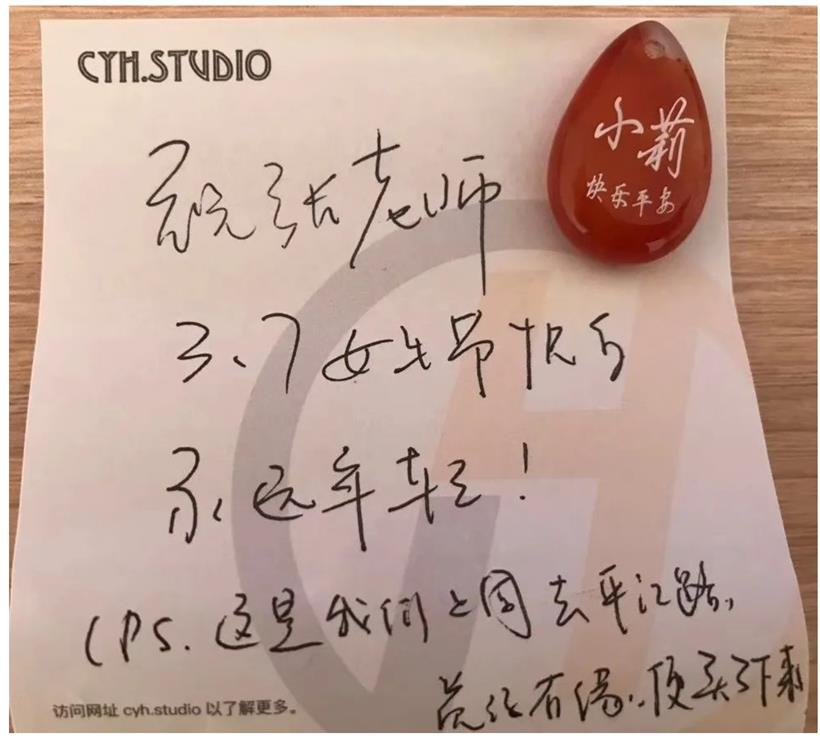 CYH.STUDIO
小莉
快乐平安
祝张老师
3、7女生节快乐
永远年轻！
(PS. 这是我们上周去平江路,
觉得有缘,便买了下来
访问网址 cyh.studio 以了解更多。